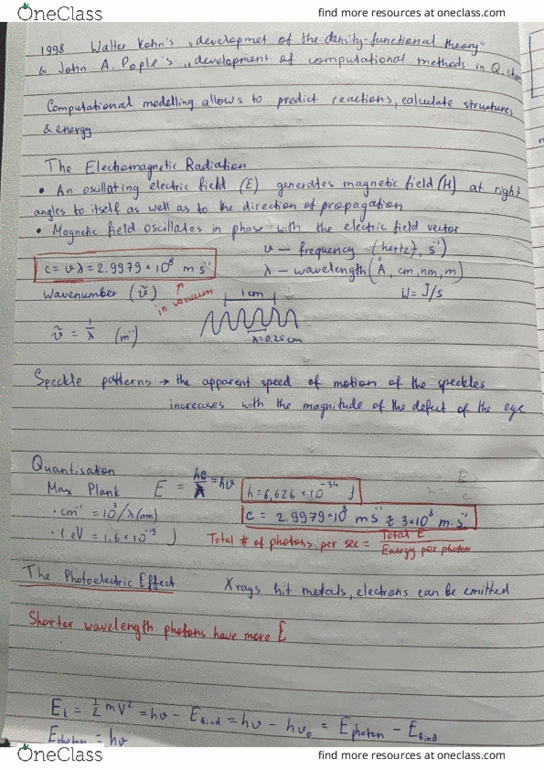 OneClass
find more resources at oneclass.com
1998 Walter Kohn's „developmet of the density-functional theory"
& John A. Pople's „development of computational methods in Q. chem
Computational modelling allows to predict reactions, calculate structures
& energy
The Electromagnetic Radiation
• An oscillating electric field (E) generates magnetic field (H) at right
angles to itself as well as to the direction of propagation
• Magnetic field oscillates in phase with the electric field vector
ν – frequency (hertz), s⁻¹)
c = νλ = 2.9979 × 10⁸ m s⁻¹
λ – wavelength (Å, cm, nm, m)
Wavenumber (ṽ)
in vacuum
1 cm
W = J/s
ṽ = 1/λ (m⁻¹)
λ = 0.25 cm
Speckle patterns → the apparent speed of motion of the speckles
increases with the magnitude of the defect of the eye
Quantisation
Max Plank E = hc/λ = hν
h = 6,626 × 10⁻³⁴ J
• cm⁻¹ = 10⁷/λ(nm)
c = 2.9979 × 10⁸ m s⁻¹ ≈ 3 × 10⁸ m · s⁻¹
• 1 eV = 1.6 × 10⁻¹⁹ J
Total # of photons per sec = Total E / Energy per photon
The Photoelectric Effect
X rays hit metals, electrons can be emitted
Shorter wavelength photons have more E
E = ½ mV² = hν – E bind = hν – hν₀ = E photon – E bind
E photon = hν
OneClass
find more resources at oneclass.com